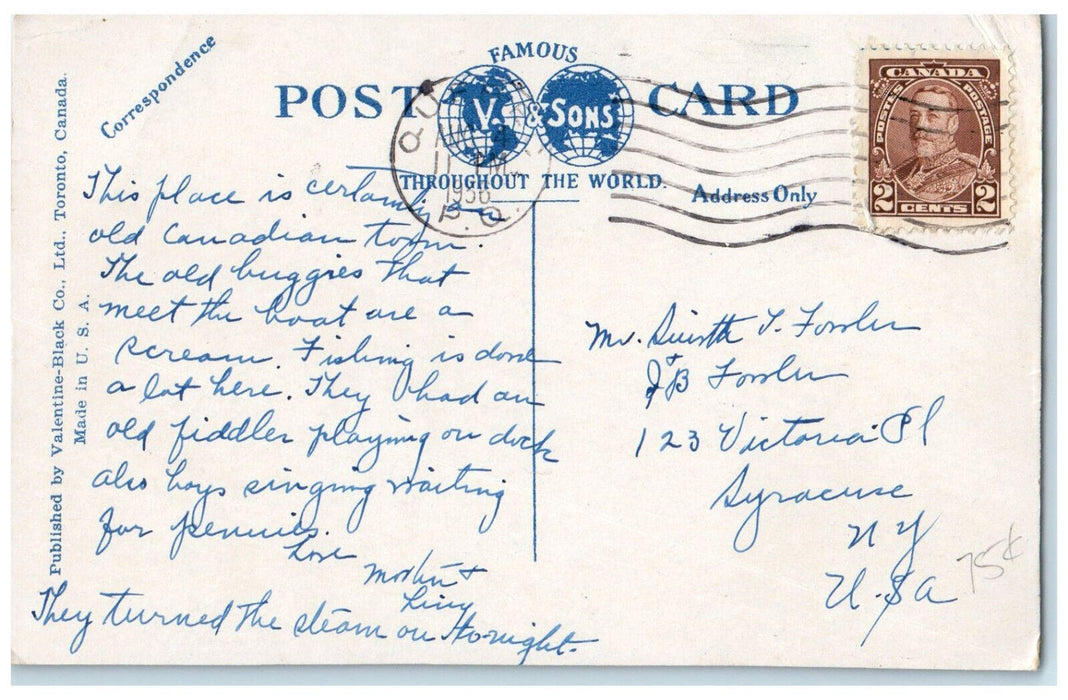 Correspondence
FAMOUS
POST CARD
V. & SONS
THROUGHOUT THE WORLD.
Address Only
Published by Valentine-Black Co., Ltd., Toronto, Canada.
Made in U. S. A.
11 PM
1936
P. Q.
CANADA
POSTES POSTAGE
2 CENTS 2
This place is certainly an
old Canadian town.
The old buggies that
meet the boat are a
scream. Fishing is done
a lot here. They had an
old fiddler playing on dock
also boys singing waiting
for pennies.
Love
+
They turned the steam on to-night.
Mr. T. Fowler
J+B Fowler
123 Victoria Pl
Syracuse
NY
U.S.A
75¢